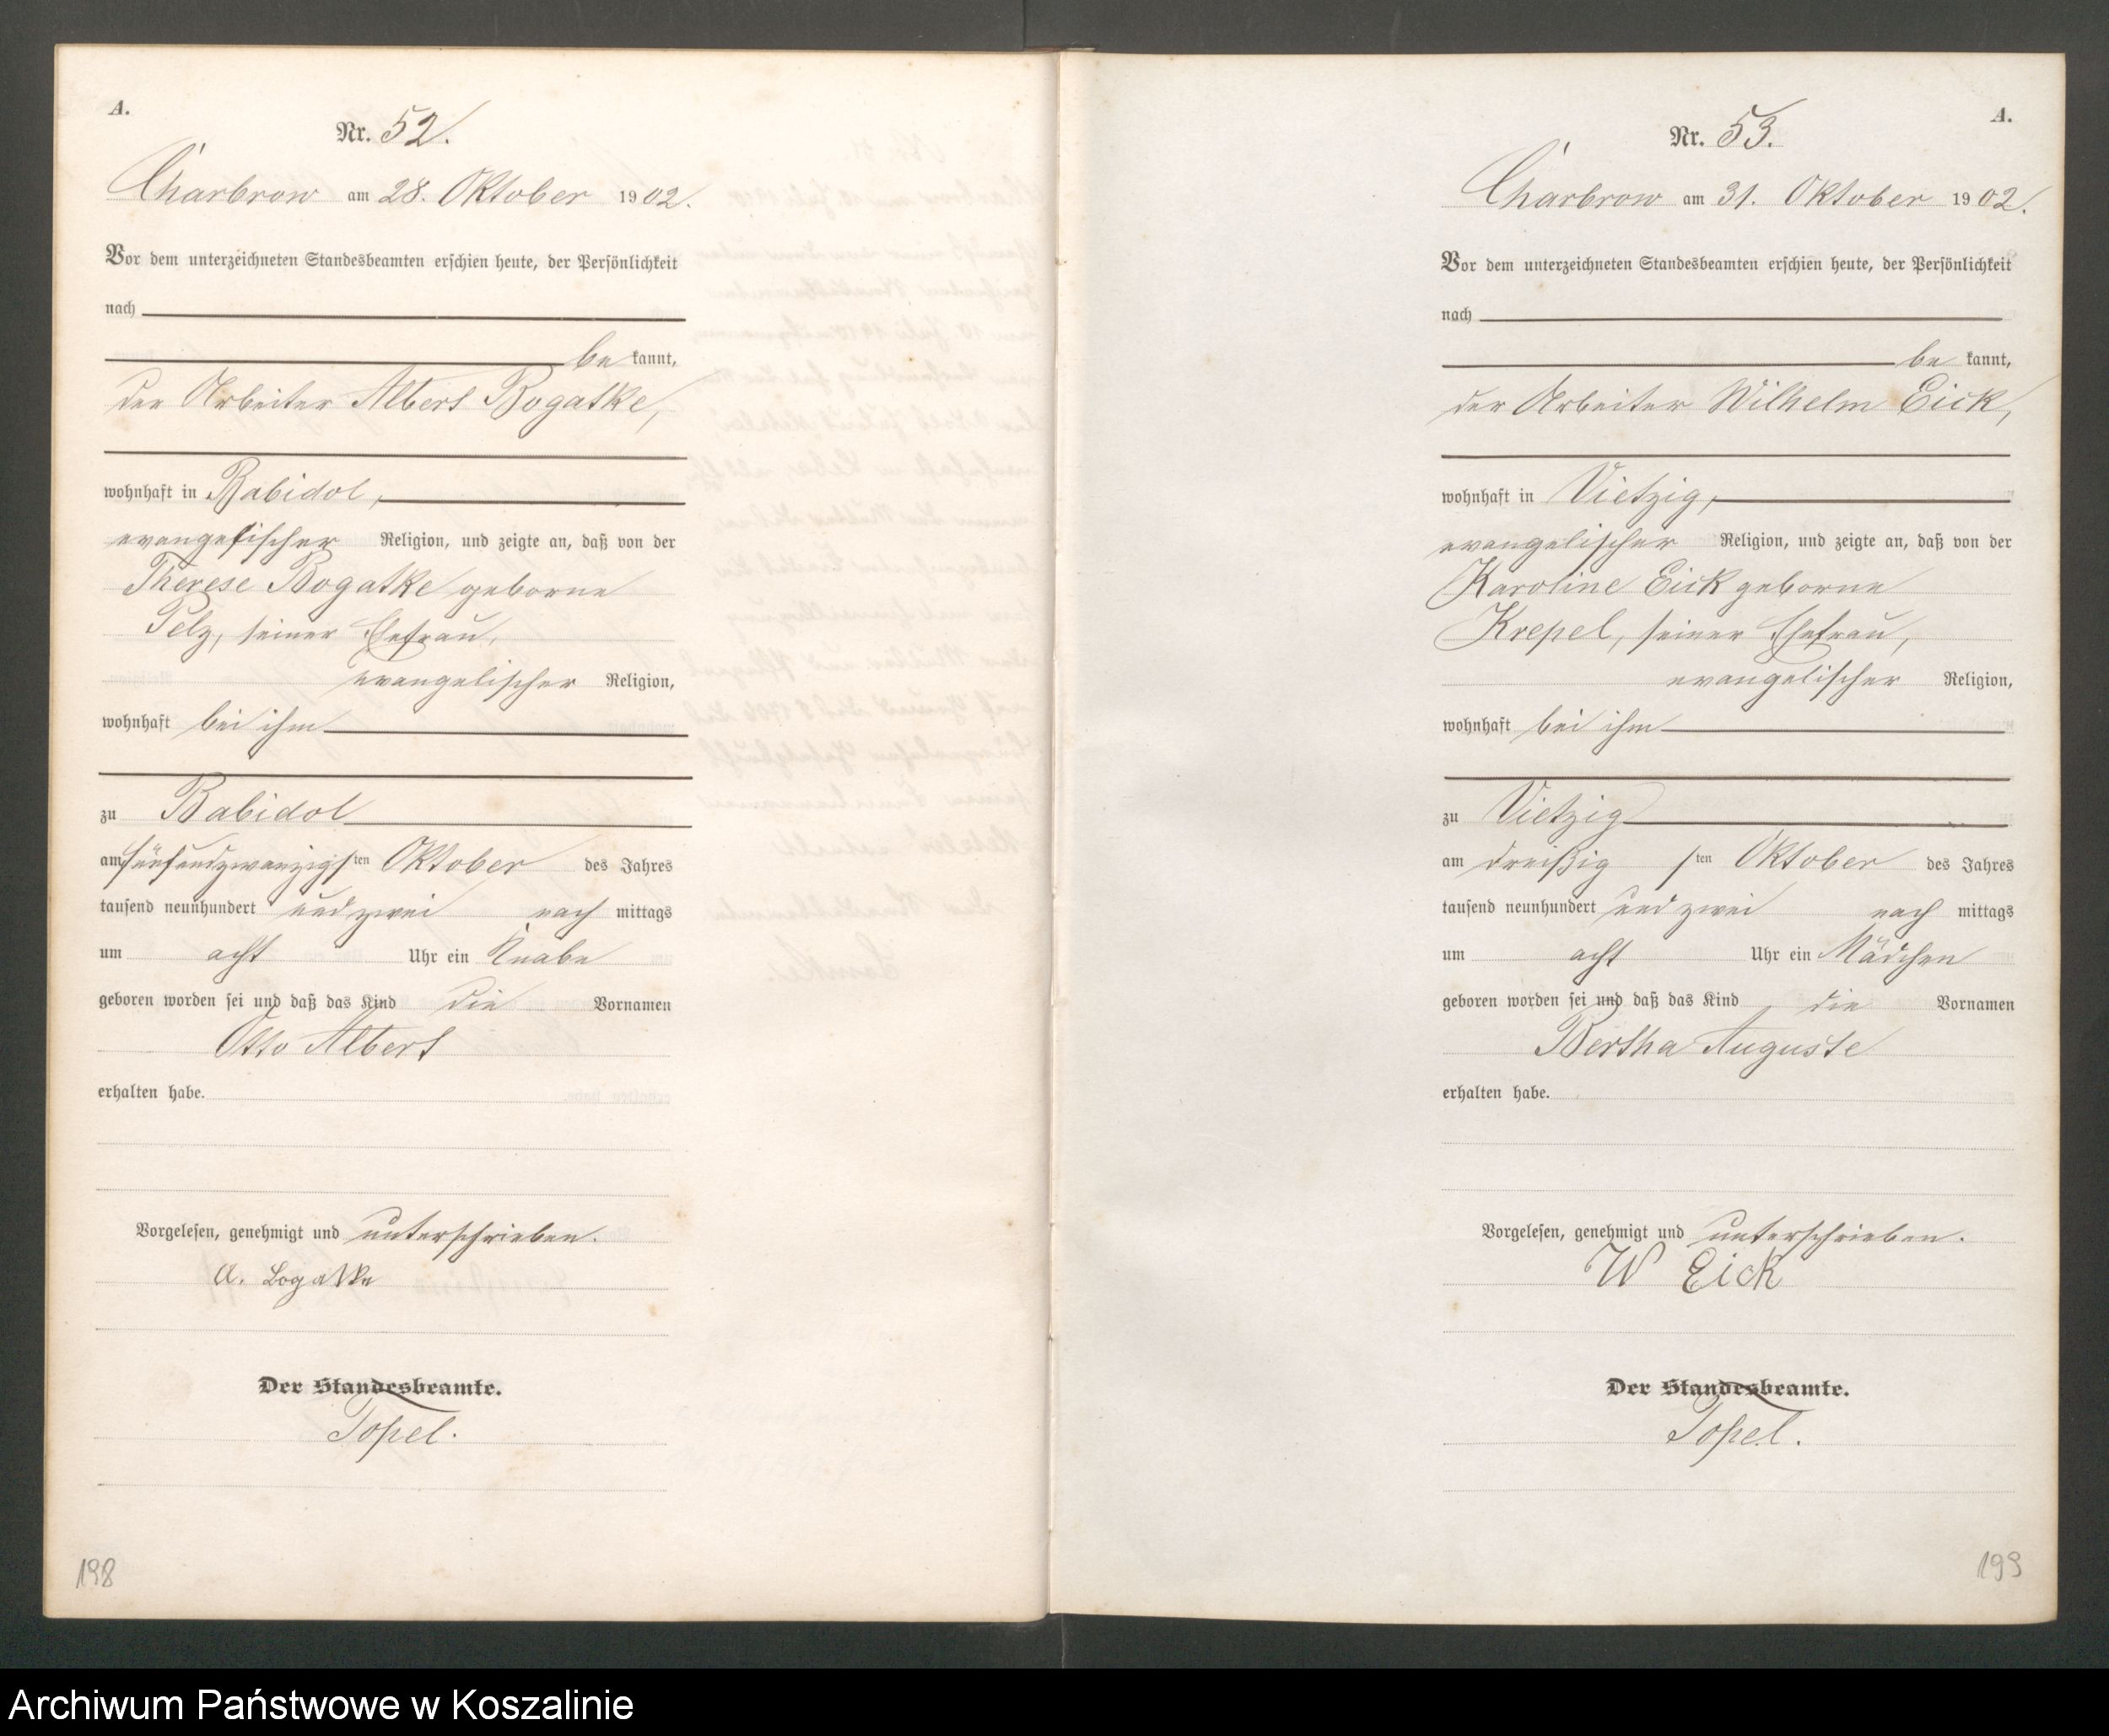 A.
Nr. 52.
Charbrow am 28. Oktober 1902.
Vor dem unterzeichneten Standesbeamten erschien heute, der Persönlichkeit
nach
be kannt,
der Arbeiter Albert Bogatke,
wohnhaft in Babidol,
evangelischer Religion, und zeigte an, daß von der
Therese Bogatke geborne
Pelz, seiner Ehefrau,
evangelischer Religion,
wohnhaft bei ihm
zu Babidol
am fünfundzwanzigsten Oktober des Jahres
tausend neunhundert und zwei nach mittags
um acht Uhr ein Knabe
geboren worden sei und daß das Kind die Vornamen
Otto Albert
erhalten habe.
Vorgelesen, genehmigt und unterschrieben.
A. Bogatke
Der Standesbeamte.
Topel.
198
A.
Nr. 53.
Charbrow am 31. Oktober 1902.
Vor dem unterzeichneten Standesbeamten erschien heute, der Persönlichkeit
nach
be kannt,
der Arbeiter Wilhelm Eick,
wohnhaft in Vietzig,
evangelischer Religion, und zeigte an, daß von der
Karoline Eick geborne
Krepel, seiner Ehefrau,
evangelischer Religion,
wohnhaft bei ihm
zu Vietzig
am dreißig sten Oktober des Jahres
tausend neunhundert und zwei nach mittags
um acht Uhr ein Mädchen
geboren worden sei und daß das Kind die Vornamen
Bertha Auguste
erhalten habe.
Vorgelesen, genehmigt und unterschrieben.
W Eick
Der Standesbeamte.
Topel.
199
Archiwum Państwowe w Koszalinie